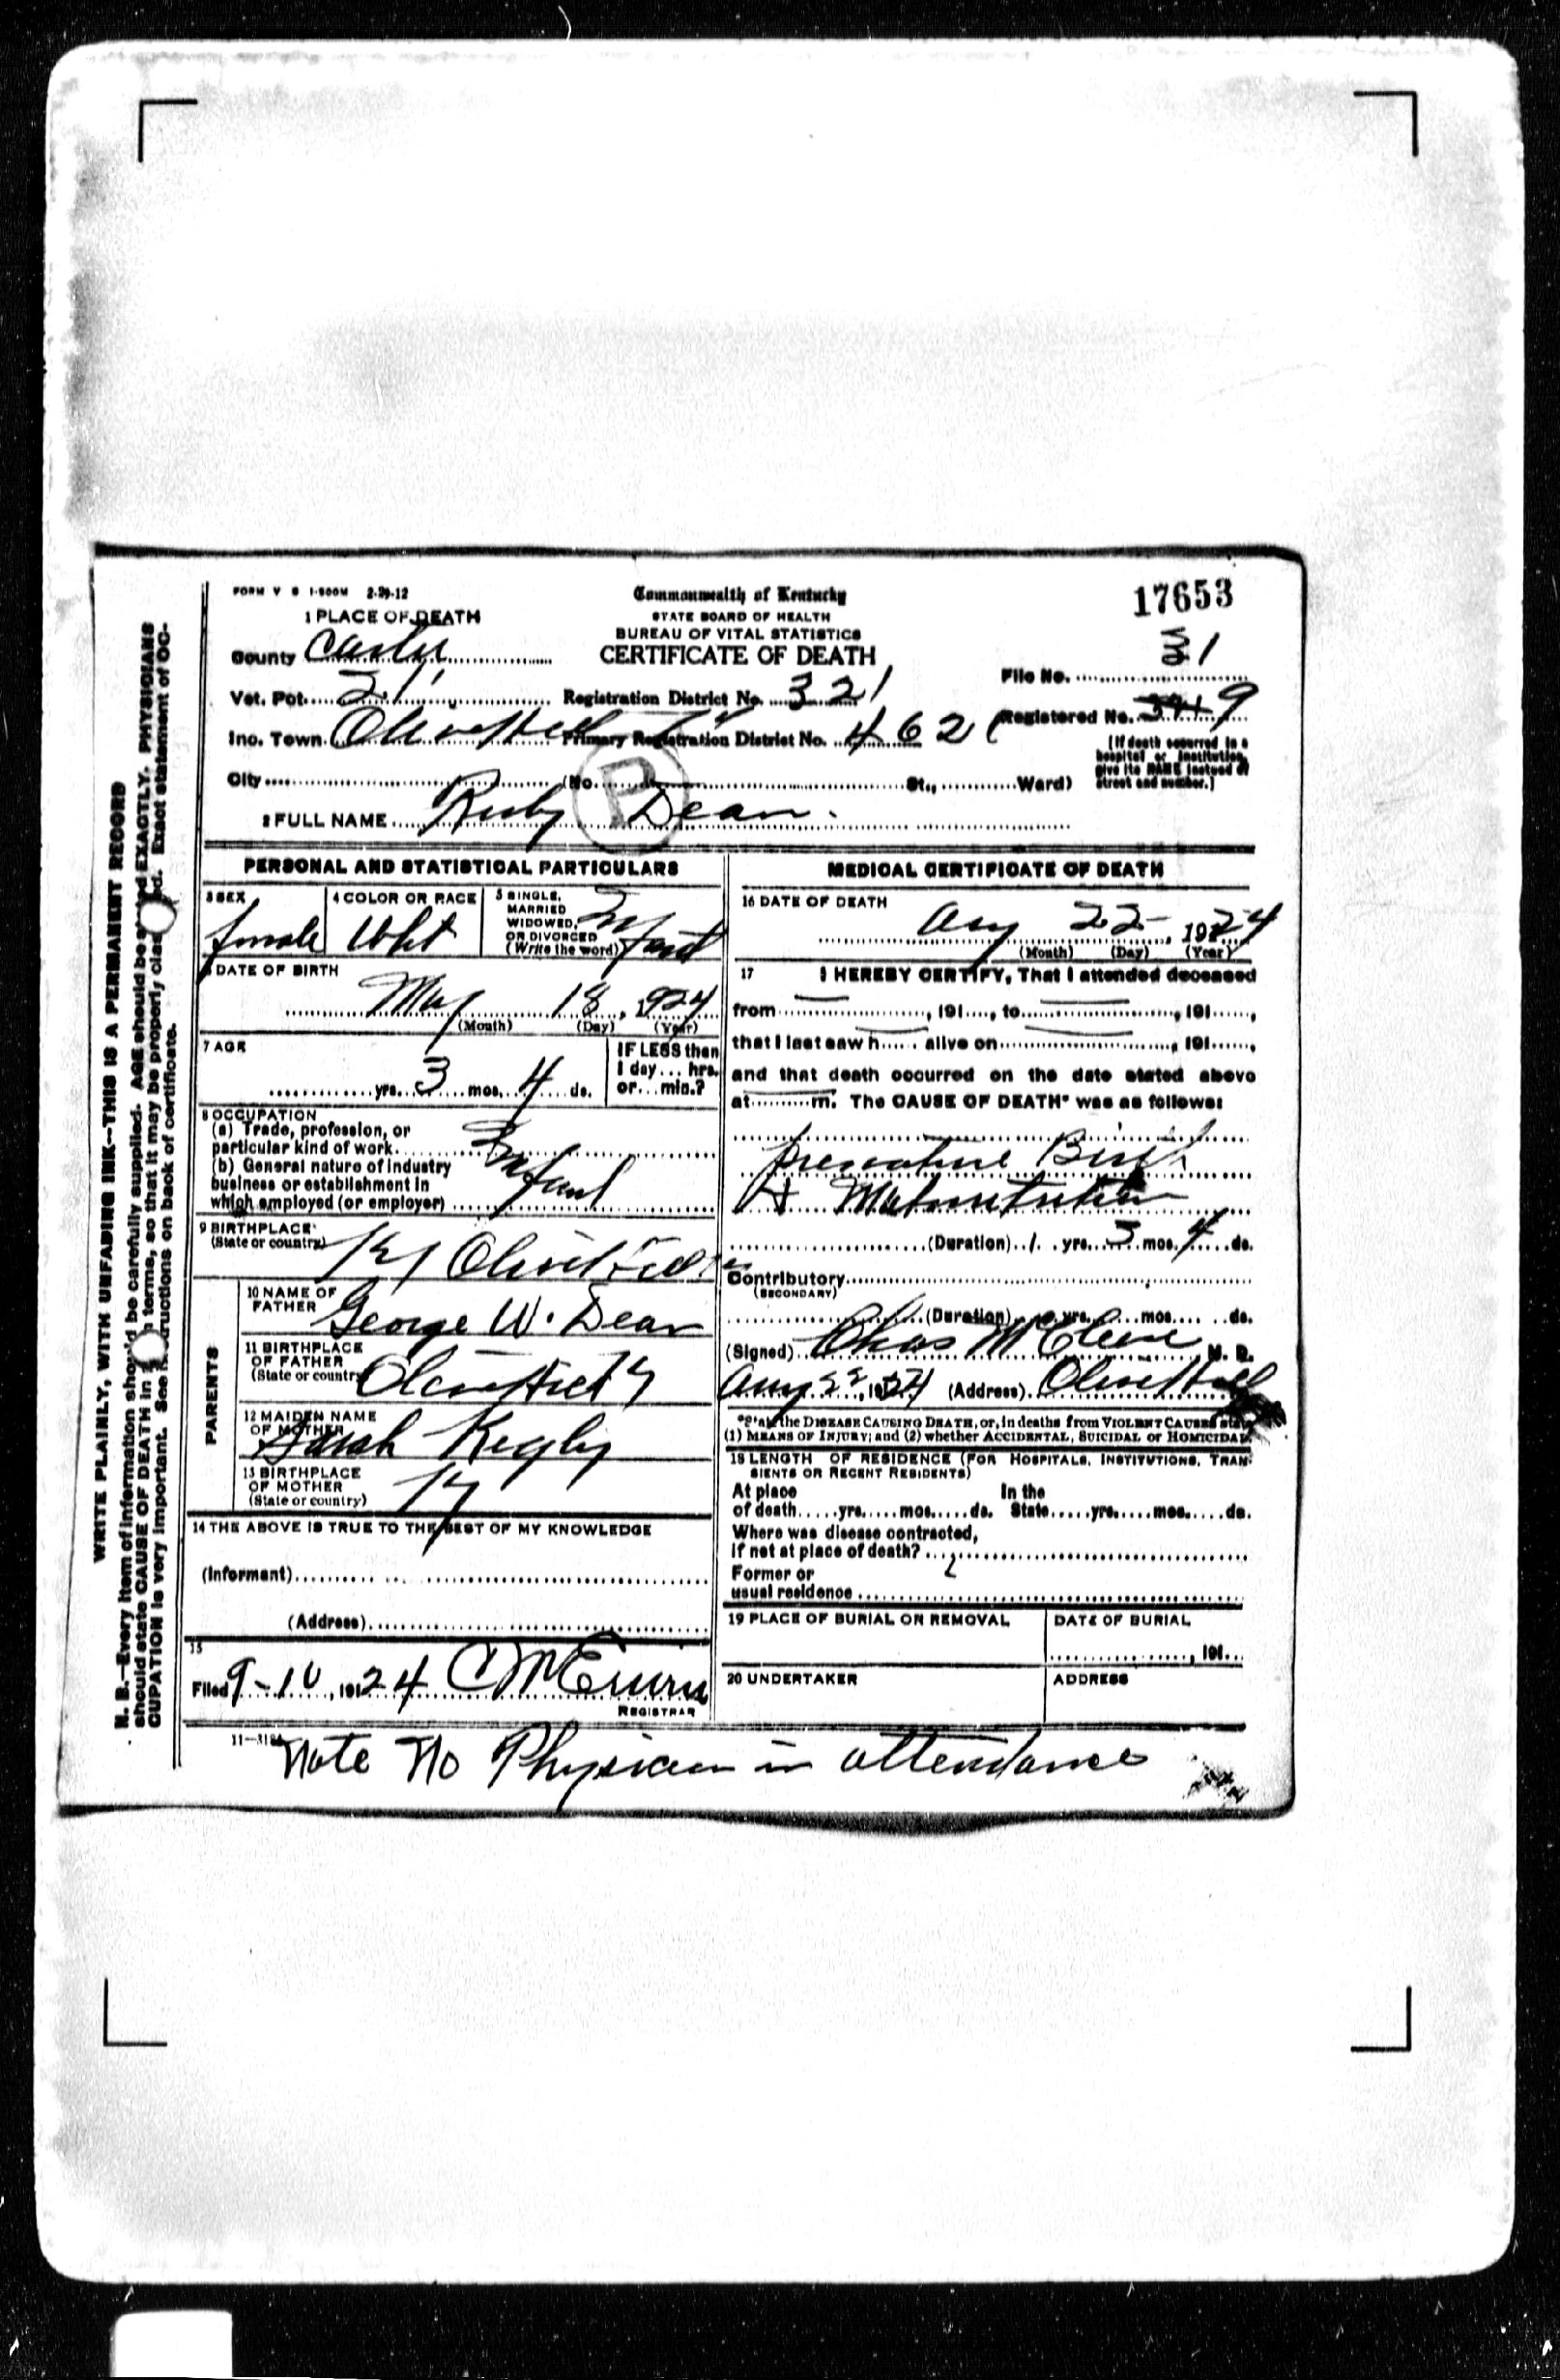 FORM V S 1-500M 2-29-12
Commonwealth of Kentucky
STATE BOARD OF HEALTH
BUREAU OF VITAL STATISTICS
CERTIFICATE OF DEATH
17653
1 PLACE OF DEATH
County Carter
File No. 31
Vot. Pct. 21
Registration District No. 321
Registered No. 9
Inc. Town Olive Hill Ky
Primary Registration District No. 462
City (No. St., Ward)
[If death occurred in a hospital or institution, give its NAME instead of street and number.]
P
2 FULL NAME Ruby Dean.
PERSONAL AND STATISTICAL PARTICULARS
3 SEX
female
4 COLOR OR RACE
Wht
5 SINGLE, MARRIED WIDOWED, OR DIVORCED (Write the word)
Infant
6 DATE OF BIRTH
May 18, 1924
(Month) (Day) (Year)
7 AGE
yrs. 3 mos. 4 ds.
IF LESS than 1 day... hrs. or... min.?
8 OCCUPATION
(a) Trade, profession, or
particular kind of work
(b) General nature of industry
business or establishment in
which employed (or employer)
Infant
9 BIRTHPLACE
(State or country)
Ky Olive Hill
PARENTS
10 NAME OF FATHER
George W. Dean
11 BIRTHPLACE OF FATHER
(State or country)
Olive Hill Ky
12 MAIDEN NAME OF MOTHER
Sarah Kegley
13 BIRTHPLACE OF MOTHER
(State or country)
Ky
14 THE ABOVE IS TRUE TO THE BEST OF MY KNOWLEDGE
(Informant)
(Address)
15
Filed 9-10, 1924
REGISTRAR
11-318
MEDICAL CERTIFICATE OF DEATH
16 DATE OF DEATH
Aug 22, 1924
(Month) (Day) (Year)
17 I HEREBY CERTIFY, That I attended deceased
from , 191 , to , 191 ,
that I last saw h alive on , 191 ,
and that death occurred on the date stated above
at m. The CAUSE OF DEATH* was as follows:
premature Birth
+ Malnutrition
(Duration) yrs. 3 mos. 4 ds.
Contributory
(SECONDARY)
(Duration) yrs. mos. ds.
(Signed) Chas M. D.
Aug 22, 1924 (Address) Olive Hill
*State the DISEASE CAUSING DEATH, or, in deaths from VIOLENT CAUSES state
(1) MEANS OF INJURY; and (2) whether ACCIDENTAL, SUICIDAL or HOMICIDAL.
18 LENGTH OF RESIDENCE (FOR HOSPITALS, INSTITUTIONS, TRAN-
SIENTS OR RECENT RESIDENTS)
At place In the
of death yrs. mos. ds. State yrs. mos. ds.
Where was disease contracted,
If not at place of death?
Former or
usual residence
19 PLACE OF BURIAL OR REMOVAL
DATE OF BURIAL
, 191
20 UNDERTAKER
ADDRESS
Note No Physician in attendance
WRITE PLAINLY, WITH UNFADING INK--THIS IS A PERMANENT RECORD
N. B.--Every item of information should be carefully supplied. AGE should be stated EXACTLY. PHYSICIANS
should state CAUSE OF DEATH in terms, so that it may be properly Exact statement of OC-
CUPATION is very important. See on back of certificate.